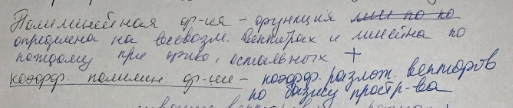 Полилинейная ф-ия - функция
определена на всевозм. векторах и линейна по
каждому при фикс. остальных +
коэфф. полилин. ф-ии - коэфф. разлож. векторов
по базису простр-ва